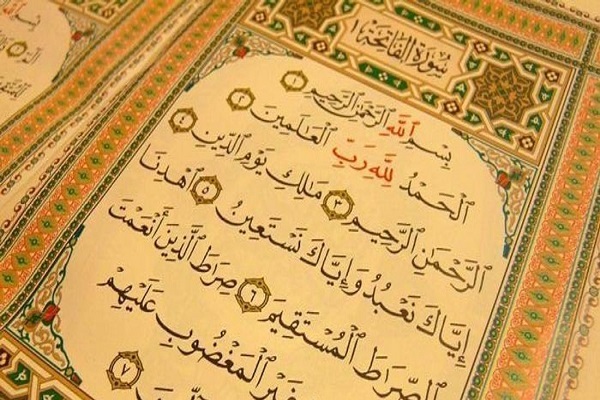 سُورَةُ الفَاتِحَةِ ١
بِسْمِ ٱللَّهِ ٱلرَّحْمَٰنِ ٱلرَّحِيمِ ١
ٱلْحَمْدُ لِلَّهِ رَبِّ ٱلْعَالَمِينَ ٢
ٱلرَّحْمَٰنِ ٱلرَّحِيمِ ٣ مَالِكِ يَوْمِ ٱلدِّينِ ٤
إِيَّاكَ نَعْبُدُ وَإِيَّاكَ نَسْتَعِينُ ٥ ٱهْدِنَا
ٱلصِّرَاطَ ٱلْمُسْتَقِيمَ ٦ صِرَاطَ ٱلَّذِينَ أَنْعَمْتَ
عَلَيْهِمْ غَيْرِ ٱلْمَغْضُوبِ عَلَيْهِمْ
٧